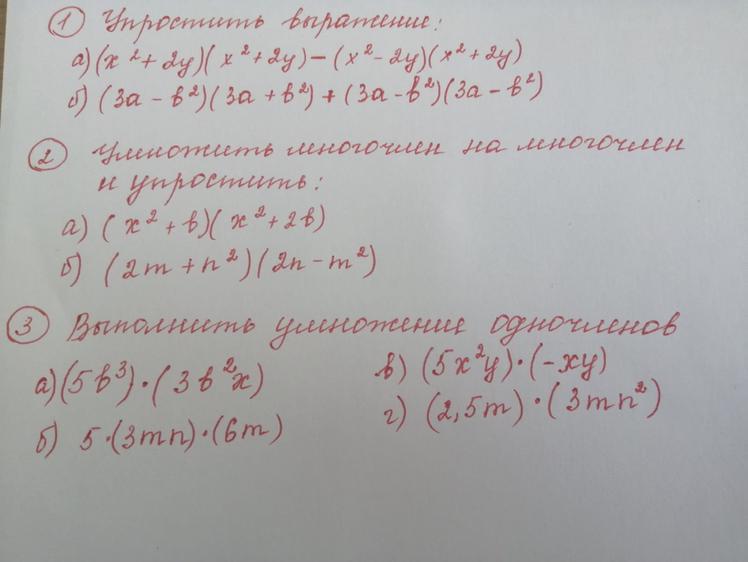 1 Упростить выражение:
а) (x² + 2y)(x² + 2y) – (x² – 2y)(x² + 2y)
б) (3a – b²)(3a + b²) + (3a – b²)(3a – b²)
2 Умножить многочлен на многочлен
и упростить:
а) (x² + b)(x² + 2b)
б) (2m + n²)(2n – m²)
3 Выполнить умножение одночленов
а) (5b³)·(3b²x)
б) 5·(3mn)·(6m)
в) (5x²y)·(-xy)
г) (2,5m)·(3mn²)